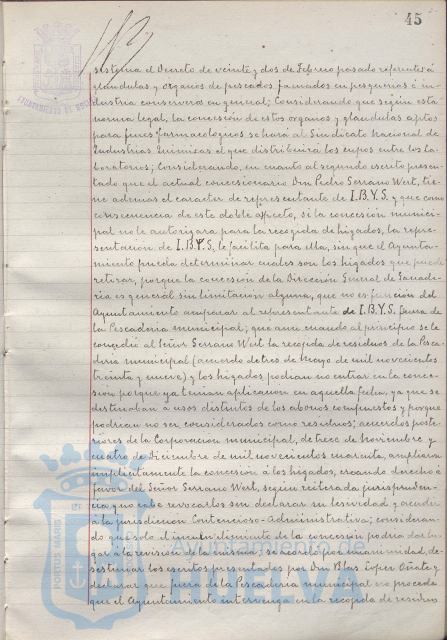 45
sistema el Decreto de veinte y dos de Febrero pasado referente á
glándulas y órganos de pescados faenados en pesquerias é in-
dustria conservera en general; Considerando que según esta
norma legal, la concesión de estos órganos y glándulas aptos
para fines farmacológicos se hará al Sindicato Nacional de
Industrias Químicas el que distribuirá los cupos entre los La-
boratorios; Considerando, en cuanto al segundo escrito presen-
tado que el actual concesionario Don Pedro Serrano Wert, tie-
ne además el caracter de representante de I.B.Y.S. y que como
consecuencia de este doble aspecto, si la concesión munici-
pal no le autorizara para la recogida de hígados, la repre-
sentación de I.B.Y.S. le facilita para ella, sin que el Ayunta-
miento pueda determinar cuales son los hígados que puede
retirar, porque la concesión de la Dirección General de Ganade-
ria es general sin limitación alguna, que no es función del
Ayuntamiento amparar al representante de I.B.Y.S. fuera de
la Pescaderia municipal; que aun cuando al principio se le
concedió al Señor Serrano Wert la recogida de residuos de la Pesca-
deria municipal (acuerdo de tres de Mayo de mil novecientos
treinta y nueve) y los hígados podian no entrar en la conce-
sión porque ya tenian aplicacion en aquella fecha, ya que se
destinaban á usos distintos de los abonos compuestos y porque
podrian no ser considerados como residuos; acuerdos poste-
riores de la Corporacion municipal, de trece de Noviembre y
cuatro de Diciembre de mil novecientos cuarenta, ampliaron
implicitamente la concesión á los hígados, creando derecho á
favor del Señor Serrano Wert, según reiterada jurispruden-
cia que no cabe revocarlos sin declarar su lesividad y acudir
á la jurisdicción Contencioso-Administrativa; consideran-
do que solo el incumplimiento de la concesión podria dar lu-
gar á la revisión de la misma; se acordó por unanimidad, de-
sestimar los escritos presentados por Don Blas López Oñate y
declarar que fuera de la Pescaderia municipal no procede
que el Ayuntamiento intervenga en la recogida de residuos
PORTUS MARIS
Ayuntamiento de
HUELVA